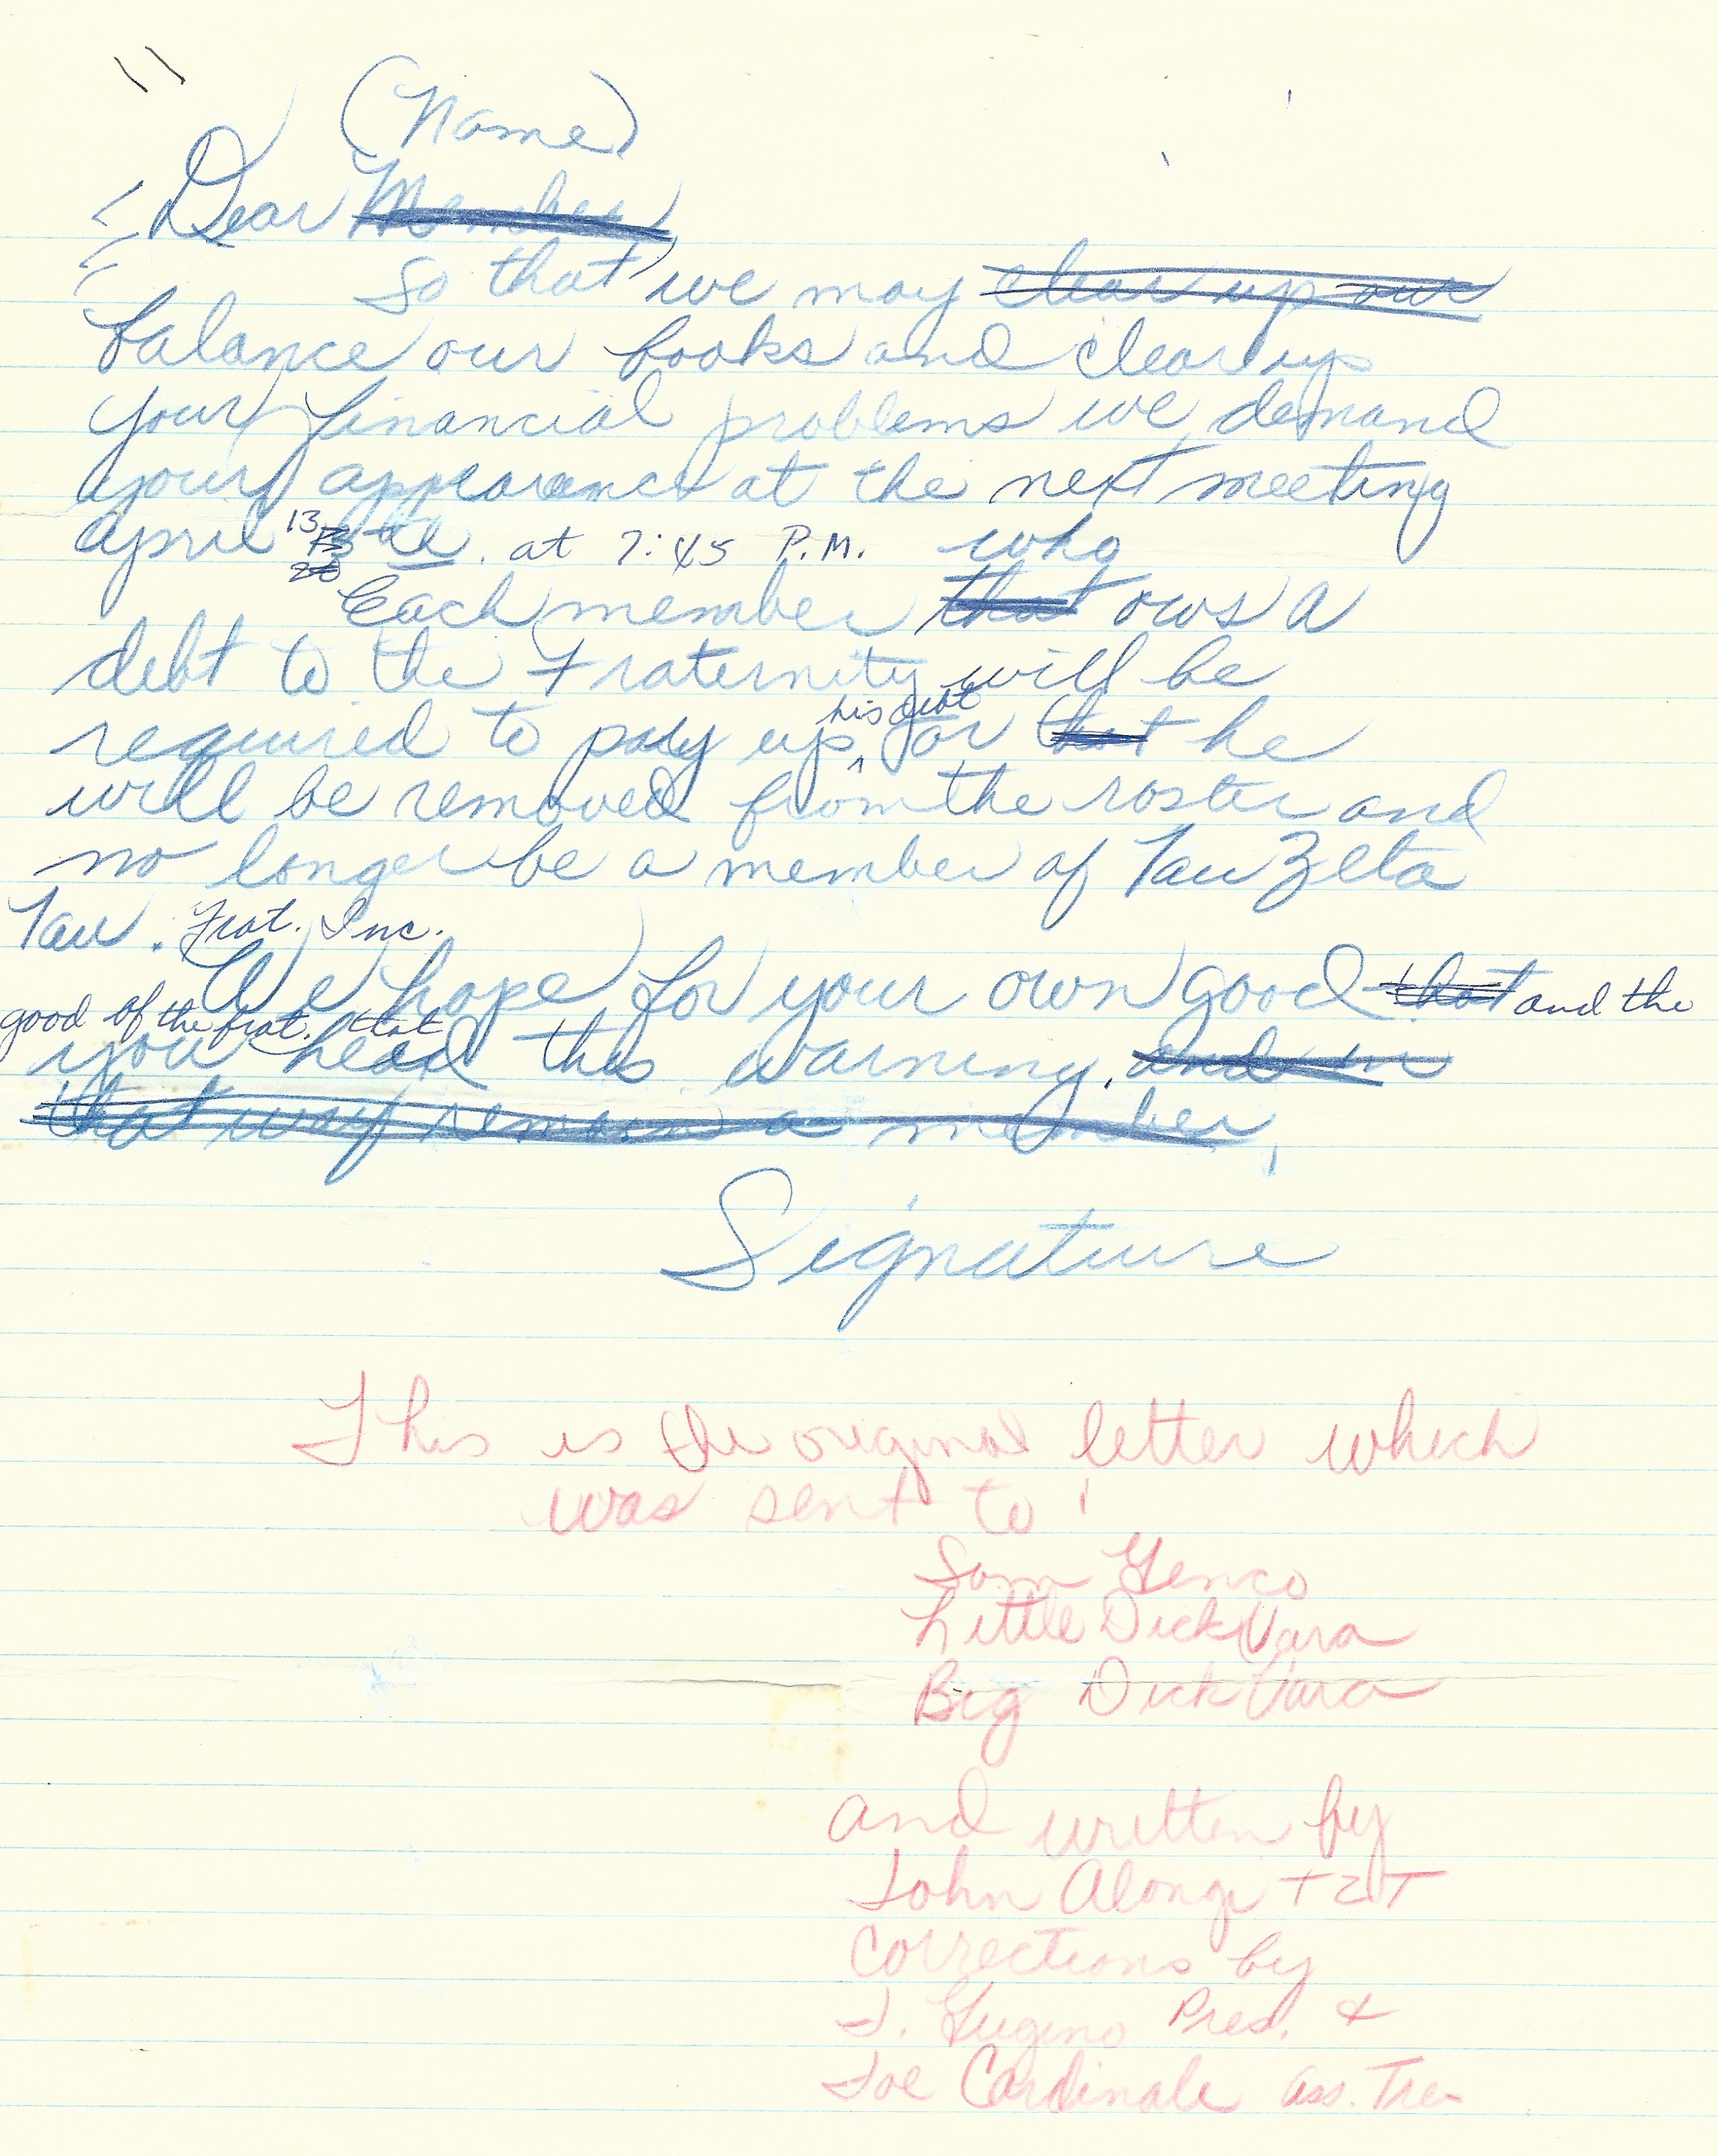 (Name)
Dear Member
So that we may clear up our
balance our books and clear up
your financial problems we demand
your appearance at the next meeting
April 13 th. at 7:45 P.M. who
20
Each member that ows a
debt to the Fraternity will be
his debt
required to pay up, or that he
will be removed from the roster and
no longer be a member of Tau Zeta
Tau. Frat. Inc.
We hope for your own good that and the
good of the frat. that
you head this warning. and in
that way remain a member.
Signature
This is the original letter which
was sent to:
Sam Genco
Little Dick Vara
Big Dick Vara
and written by
John Alongi TZT
Corrections by
J. Gugino Pres. &
Joe Cardinale Ass. Tre-